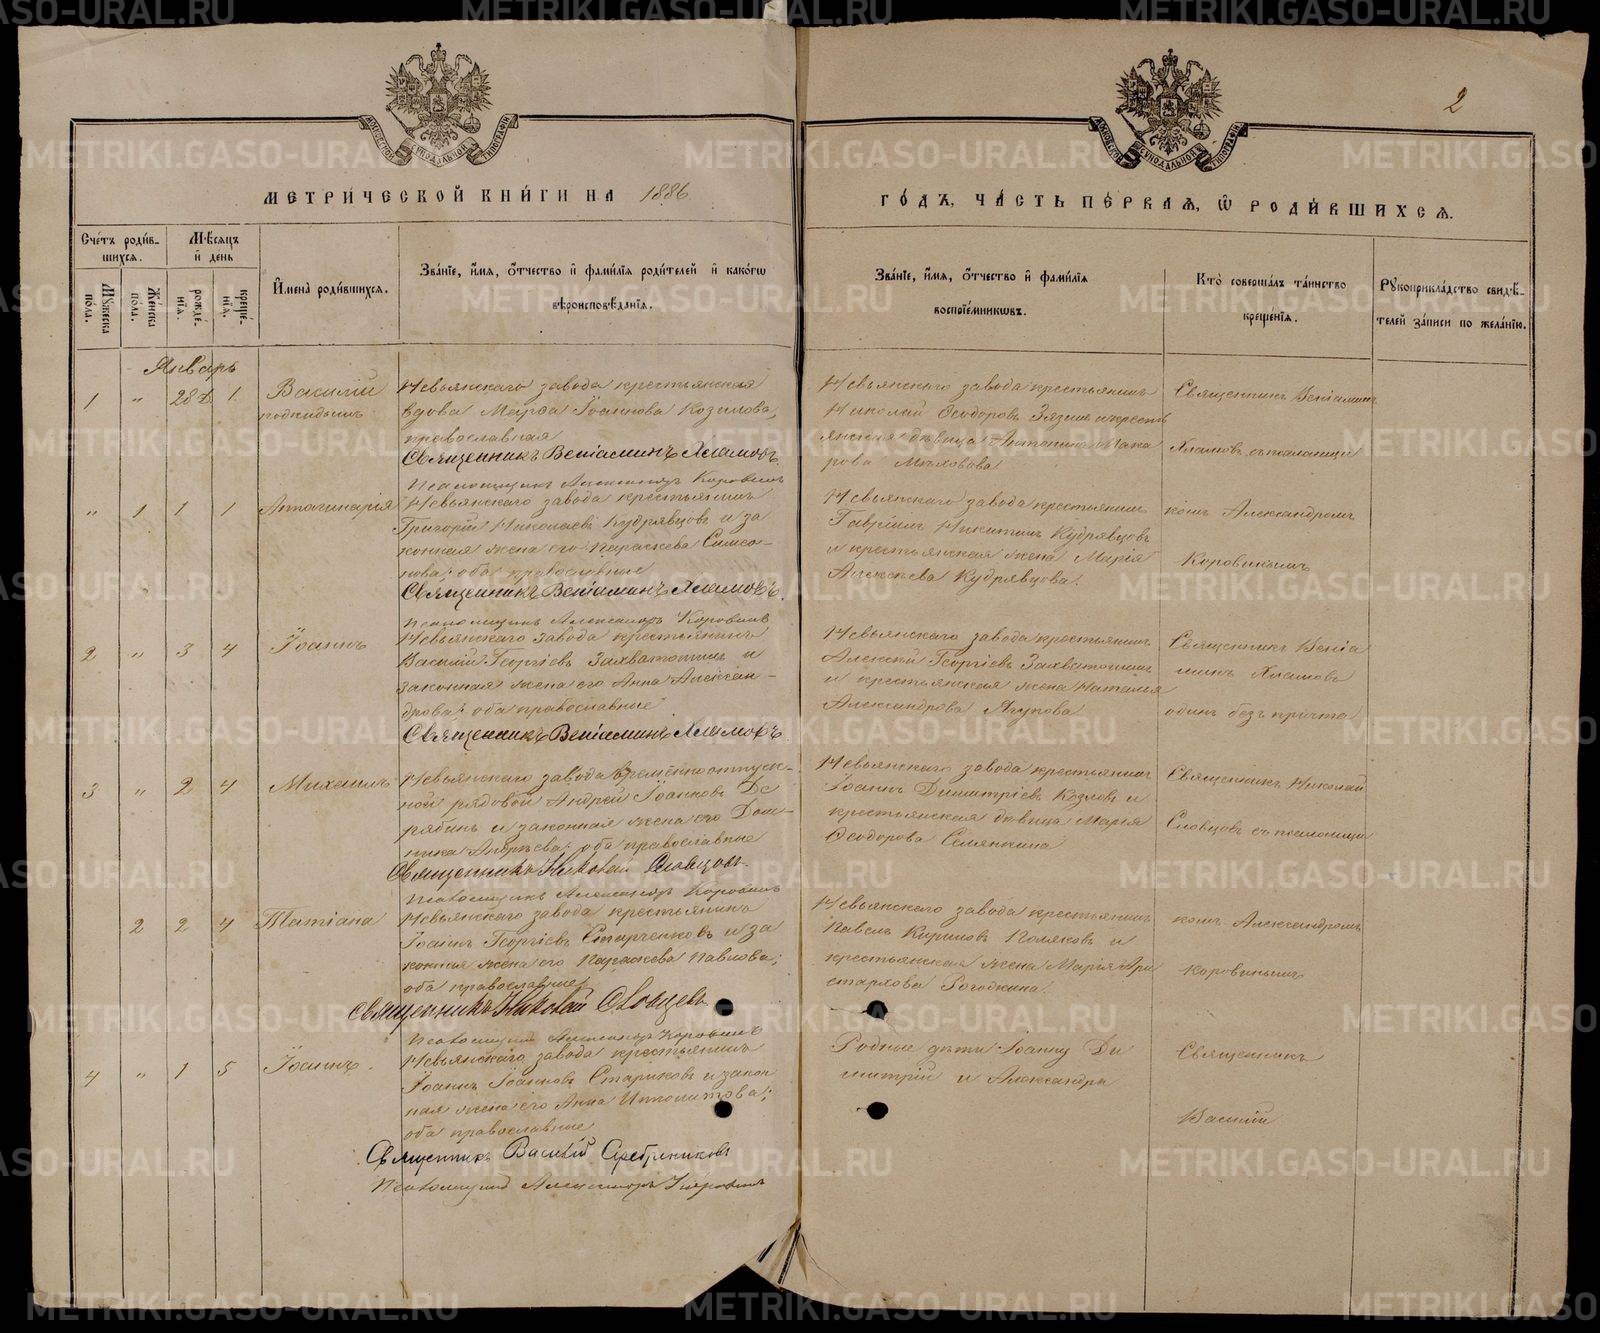 2
МЕТРИЧЕСКОЙ КНИГИ НА 1886
ГОДЪ, ЧАСТЬ ПЕРВАЯ, Ѡ РОДИВШИХСЯ.
Счетъ родившихся.
Мужеска пола.
Женска пола.
Мѣсяцъ и день
рожденїя.
крещенїя.
Имена родившихся.
Званїе, имя, отчество и фамилїя родителей и какогѡ
вѣроисповѣданїя.
Званїе, имя, отчество и фамилїя
воспрїемникѡвъ.
Кто совершалъ таинство
крещенїя.
Рукоприкладство свидѣ-
телей записи по желанїю.
Январь
1 " 28 1. Василій
подкидышъ
Невьянскаго завода крестьянская
вдова Марѳа Іоаннова Козилова,
православная
Священникъ Веніаминъ Хламовъ.
Псаломщикъ Александръ Коровинъ
Невьянскаго завода крестьянинъ
Николай Ѳеодоровъ Зязинъ и кресть
янская дѣвица Антонина Мака
рова Мѣховова
Священникъ Веніаминъ
Хламовъ съ псаломщи
" 1 1 1 Аполлинарія
Невьянскаго завода крестьянинъ
Григорій Николаевъ Кудрявцовъ и за
конная жена его Параскева Симео-
нова; оба православные
Священникъ Веніаминъ Хламовъ.
Псаломщикъ Александръ Коровинъ
Невьянскаго завода крестьянинъ
Гавріилъ Никитинъ Кудрявцовъ
и крестьянская жена Марія
Алексѣева Кудрявцова.
комъ Александромъ
Коровинымъ
2 " 3 4 Іоаннъ
Невьянскаго завода крестьянинъ
Василій Георгіевъ Захватошинъ и
законная жена его Анна Алексан-
дрова; оба православные
Священникъ Веніаминъ Хламовъ.
Невьянскаго завода крестьянинъ
Алексѣй Георгіевъ Захватошинъ
и крестьянская жена Наталія
Александрова Ягупова
Священникъ Веніа
минъ Хламовъ
одинъ безъ причта
3 " 2 4 Михаилъ
Невьянскаго завода временноотпуск-
ной рядовой Андрей Іоанновъ Де
рябинъ и законная жена его Дом-
ника Андреева; оба православные
Священникъ Николай Словцовъ.
Псаломщикъ Александръ Коровинъ
Невьянскаго завода крестьянинъ
Іоаннъ Димитріевъ Козловъ и
крестьянская дѣвица Марія
Ѳеодорова Семянкина
Священникъ Николай
Словцовъ съ псаломщи
2 2 4 Татіана
Невьянскаго завода крестьянинъ
Іоаннъ Георгіевъ Старченковъ и за
конная жена его Параскева Павлова;
оба православные
Священникъ Николай Словцовъ.
Псаломщикъ Александръ Коровинъ
Невьянскаго завода крестьянинъ
Павелъ Кириловъ Поляковъ и
крестьянская жена Марія Ари
стархова Рогодкина.
комъ Александромъ
Коровинымъ
4 " 1 5 Іоаннъ.
Невьянскаго завода крестьянинъ
Іоаннъ Іоанновъ Стариковъ и закон
ная жена его Анна Ипполитова;
оба православные
Священникъ Василій Серебренниковъ
Псаломщикъ Александръ Коровинъ
Родные дѣти Іоанну Ди
митрій и Александра
Священникъ
Василій
METRIKI.GASO-URAL.RU